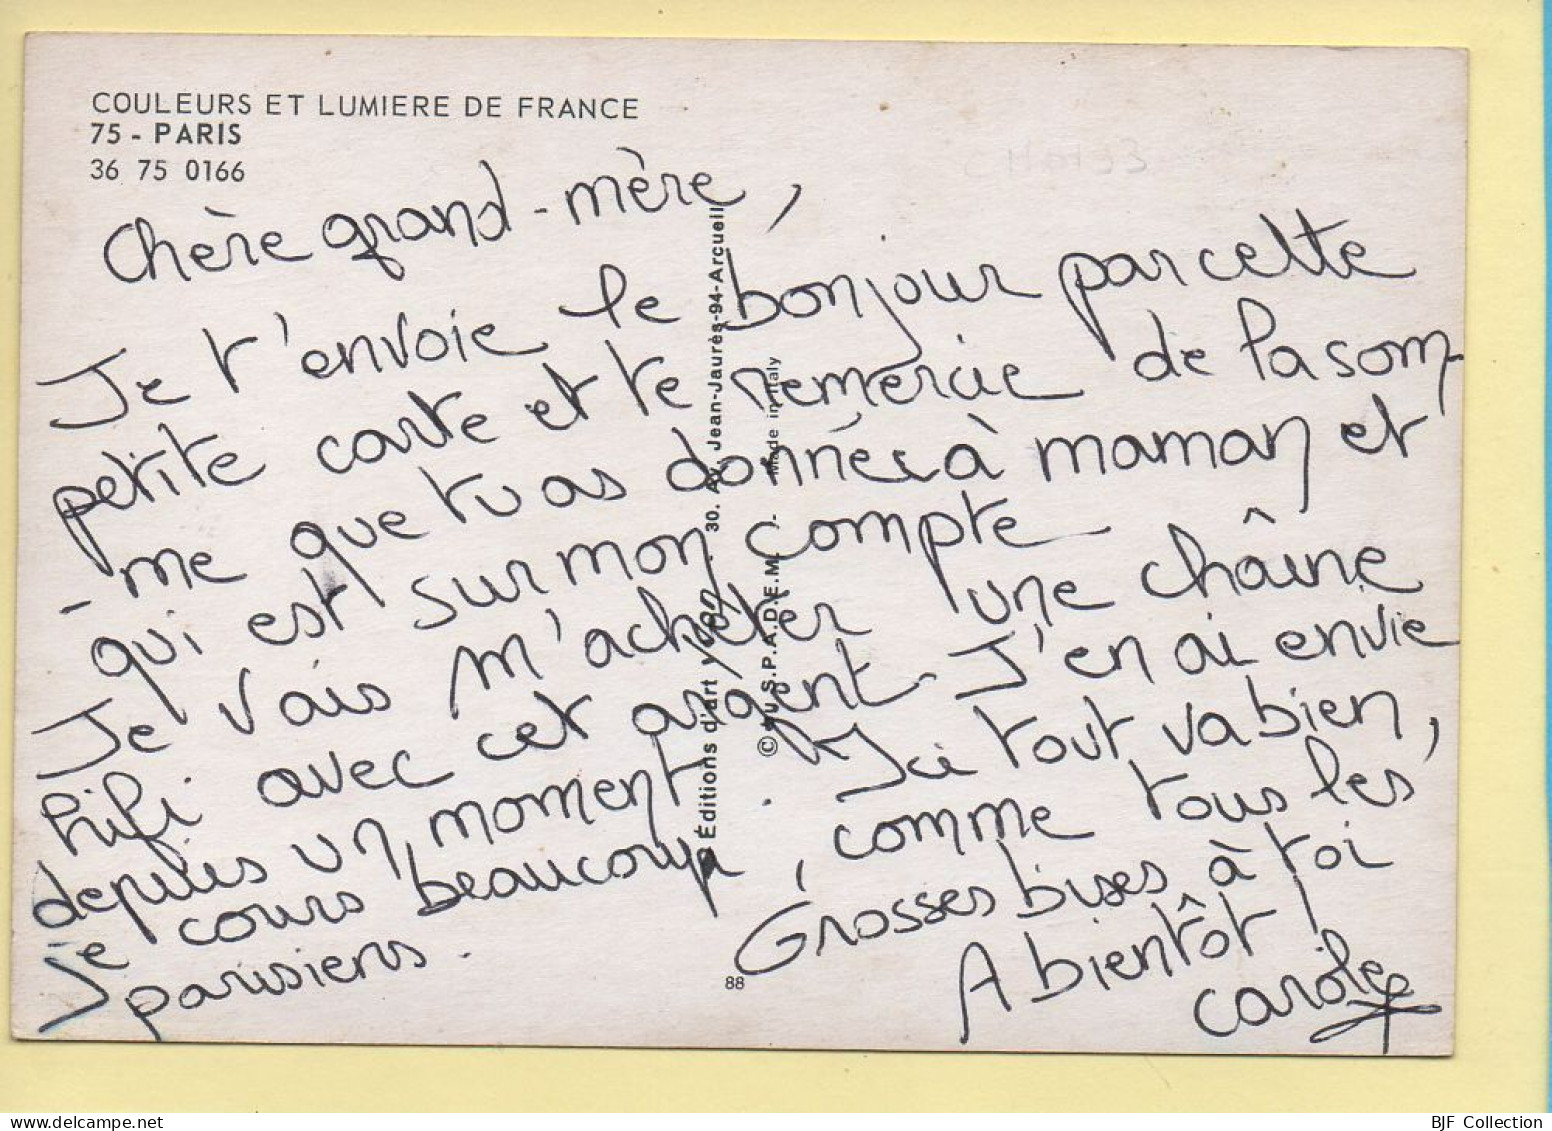 COULEURS ET LUMIERE DE FRANCE
75 - PARIS
36 75 0166
Chère grand-mère,
Je t'envoie le bonjour par cette
petite carte et te remercie de la som-
-me que tu as donnée à maman et
qui est sur mon compte
Je vais m'acheter une chaîne
hifi avec cet argent. J'en ai envie
depuis un moment. Ici tout va bien,
je cours beaucoup, comme tous les
parisiens.
Grosses bises à toi
A bientôt !
Carole
Éditions d'art yvon - 30. Av. Jean-Jaurès-94-Arcueil
© by S.P.A.D.E.M. - Made in Italy
88
BJF Collection